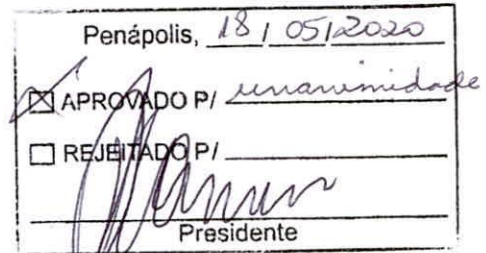 Penápolis, 18 / 05 / 2020
☒ APROVADO P/ unanimidade
☐ REJEITADO P/
Presidente